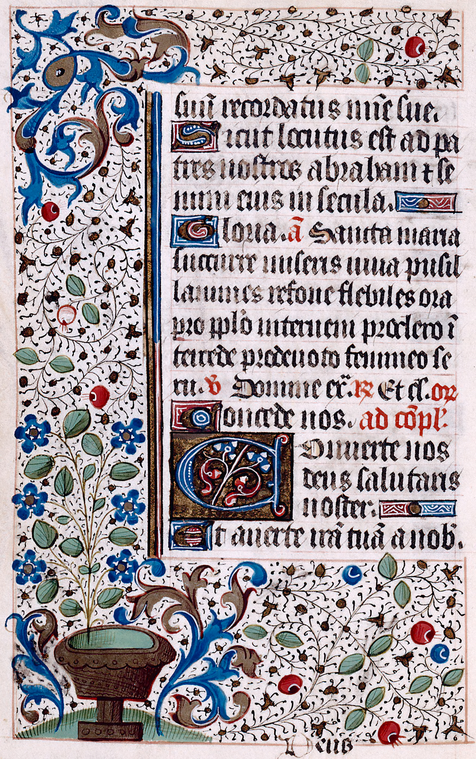 suū recordatus mīe sue.
Sicut locutus est ad pa
tres nostros abraham ⁊ se
mini eius in secula.
Gloria. ā Sancta maria
succurre miseris iuua pusil
lanimes refoue flebiles ora
pro pplō interueni pro clero ī
tercede pro deuoto femineo se
xu. ꝟ Domine ex̄. ꝶ Et cl. or̄
Concede nos. ad cōpl'.
Conuerte nos
deus salutaris
noster.
Et auerte irā tuā a nob̄.
Deus